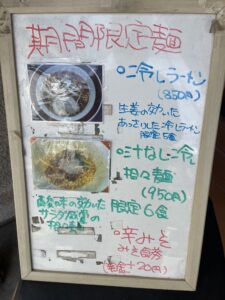 期間限定麺
○冷しラーメン
(850円)
生姜の効いた
あっさりした冷しラーメン
限定5食
○汁なし冷
担々麺
(950円)
限定6食
酸味の効いた
サラダ感覚の
担々麺
○辛みそ